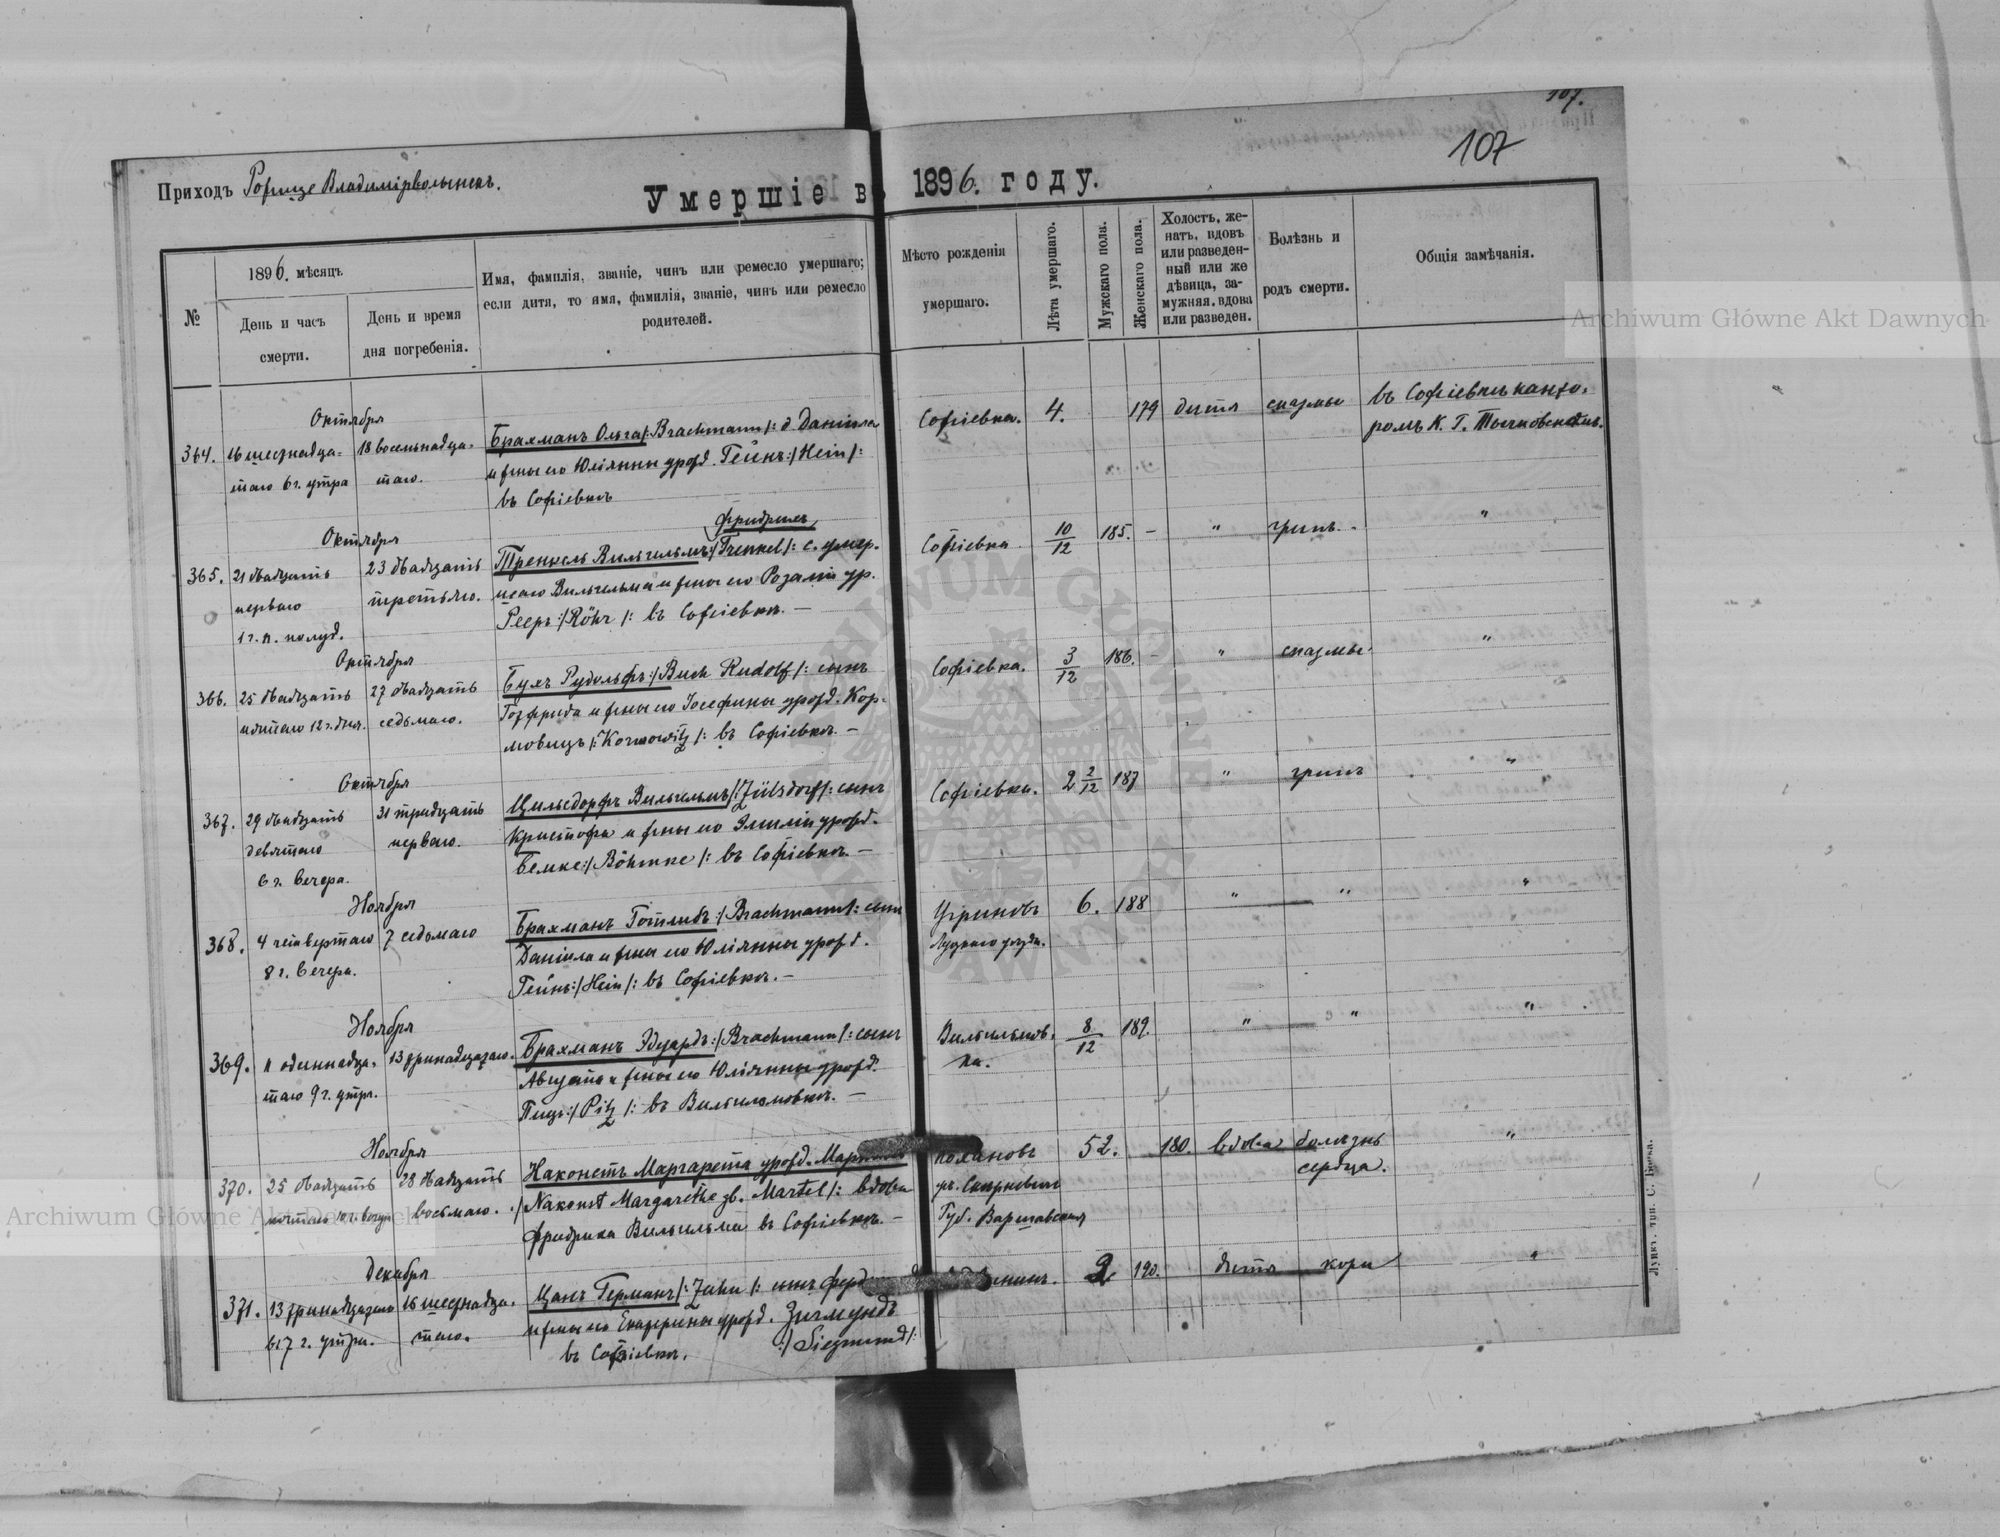 107.
107
Приходъ Рожище Владимірволынскъ.
Умершіе въ 1896. году.
№
1896. мѣсяцъ
День и часъ
смерти.
День и время
дня погребенія.
Имя, фамилія, званіе, чинъ или ремесло умершаго;
если дитя, то имя, фамилія, званіе, чинъ или ремесло
родителей.
Мѣсто рожденія
умершаго.
Лѣта умершаго.
Мужскаго пола.
Женскаго пола.
Холостъ, же-
натъ, вдовъ
или разведен-
ный или же
дѣвица, за-
мужняя, вдова
или разведен.
Болѣзнь и
родъ смерти.
Общія замѣчанія.
Октября
364. 16 шестнадца- 18 восемьнадца- Брахманъ Ольга /: Brachmann /: д. Даніила Софіевка. 4. 179 дитя спазмы въ Софіевкѣ канто-
таго 6 г. утра таго. и жены его Юліянны урожд. Гейнъ :/ Hein /: ромъ К. Г.
въ Софіевкѣ
Октября Фридрихъ
365. 21 двадцать 23 двадцать Тренкель Вильгельмъ :/ Trenkel /: с. умер- Софіевка 10/12 185. - " грипъ. "
перваго третьяго. шаго Вильгельма и жены его Розаліи ур.
1 г. п. полуд. Рееръ :/ Röhr /: въ Софіевкѣ. —
Октября
366. 25 двадцать 27 двадцать Бухъ Рудольфъ :/ Buch Rudolf /: сынъ Софіевка. 3/12 186. - " спазмы "
пятаго 12 г. дня. седьмаго. Готфрида и жены его Іосефины урожд. Кор-
мовицъ /: Kormowitz /: въ Софіевкѣ. —
Октября
367. 29 двадцать 31 тридцать Цильсдорфъ Вильгельмъ /: Zülsdorf /: сынъ Софіевка. 2 2/12 187 " грипъ "
девятаго перваго. Кристофа и жены его Эмиліи урожд.
6 г. вечера. Бемке :/ Böhmke /: въ Софіевкѣ. —
Ноября
368. 4 четвертаго 7 седьмаго Брахманъ Готлибъ :/ Brachmann /: сынъ Угриновъ 6. 188 " " "
8 г. вечера. Даніила и жены его Юліянны урожд. Луцкаго уѣзда.
Гейнъ :/ Hein /: въ Софіевкѣ. —
Ноября
369. 11 одиннадца- 13 тринадцатаго. Брахманъ Эдуардъ :/ Brachmann /: сынъ Вильгельмов- 8/12 189. " " "
таго 9 г. утра. Августа и жены его Юліянны урожд. ка.
Пицъ :/ Pitz /: въ Вильгельмовкѣ. —
Ноября
370. 25 двадцать 28 двадцать Наконстъ Маргарета урожд. 52. 180. вдова болѣзнь "
пятаго 10 г. вечера восьмаго. :/ Nakonst Margarethe gb. Martel /: вдова сердца.
Фридриха Вильгельма въ Софіевкѣ. — Губ. Варшавская
Декабря
371. 13 тринадцатаго 16 шестнадца- Цанъ Германъ /: Zahn /: сынъ 2 190. дитя кори "
7 г. утра. таго. и жены его Екатерины урожд. Зигмундъ
въ Софіевкѣ. :/ Siegmund /:
Луцкъ. тип. С. Бонка.
Archiwum Główne Akt Dawnych
Archiwum Główne Akt Dawnych